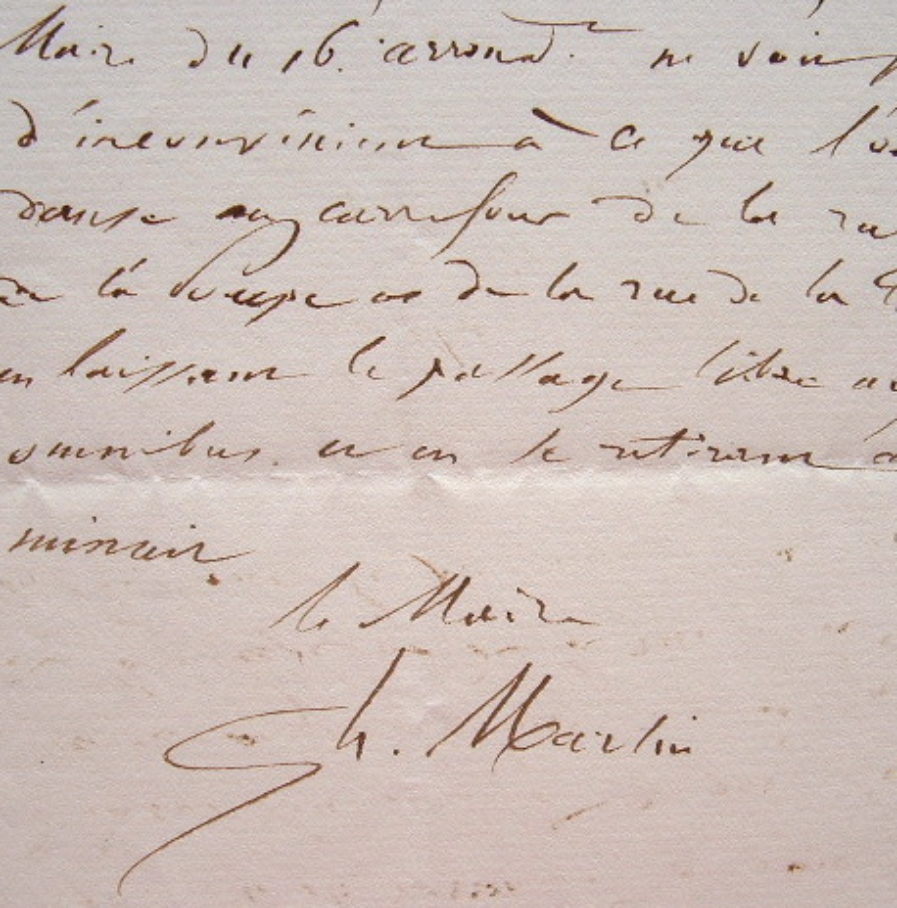 Maire du 16e arrondt ne voit
d'inconvénient à ce que l'on
danse au carrefour de la rue
de la Pompe et de la rue de la
en laissant le passage libre aux
omnibus et en se retirant à
minuit.
le Maire
Ch. Martin